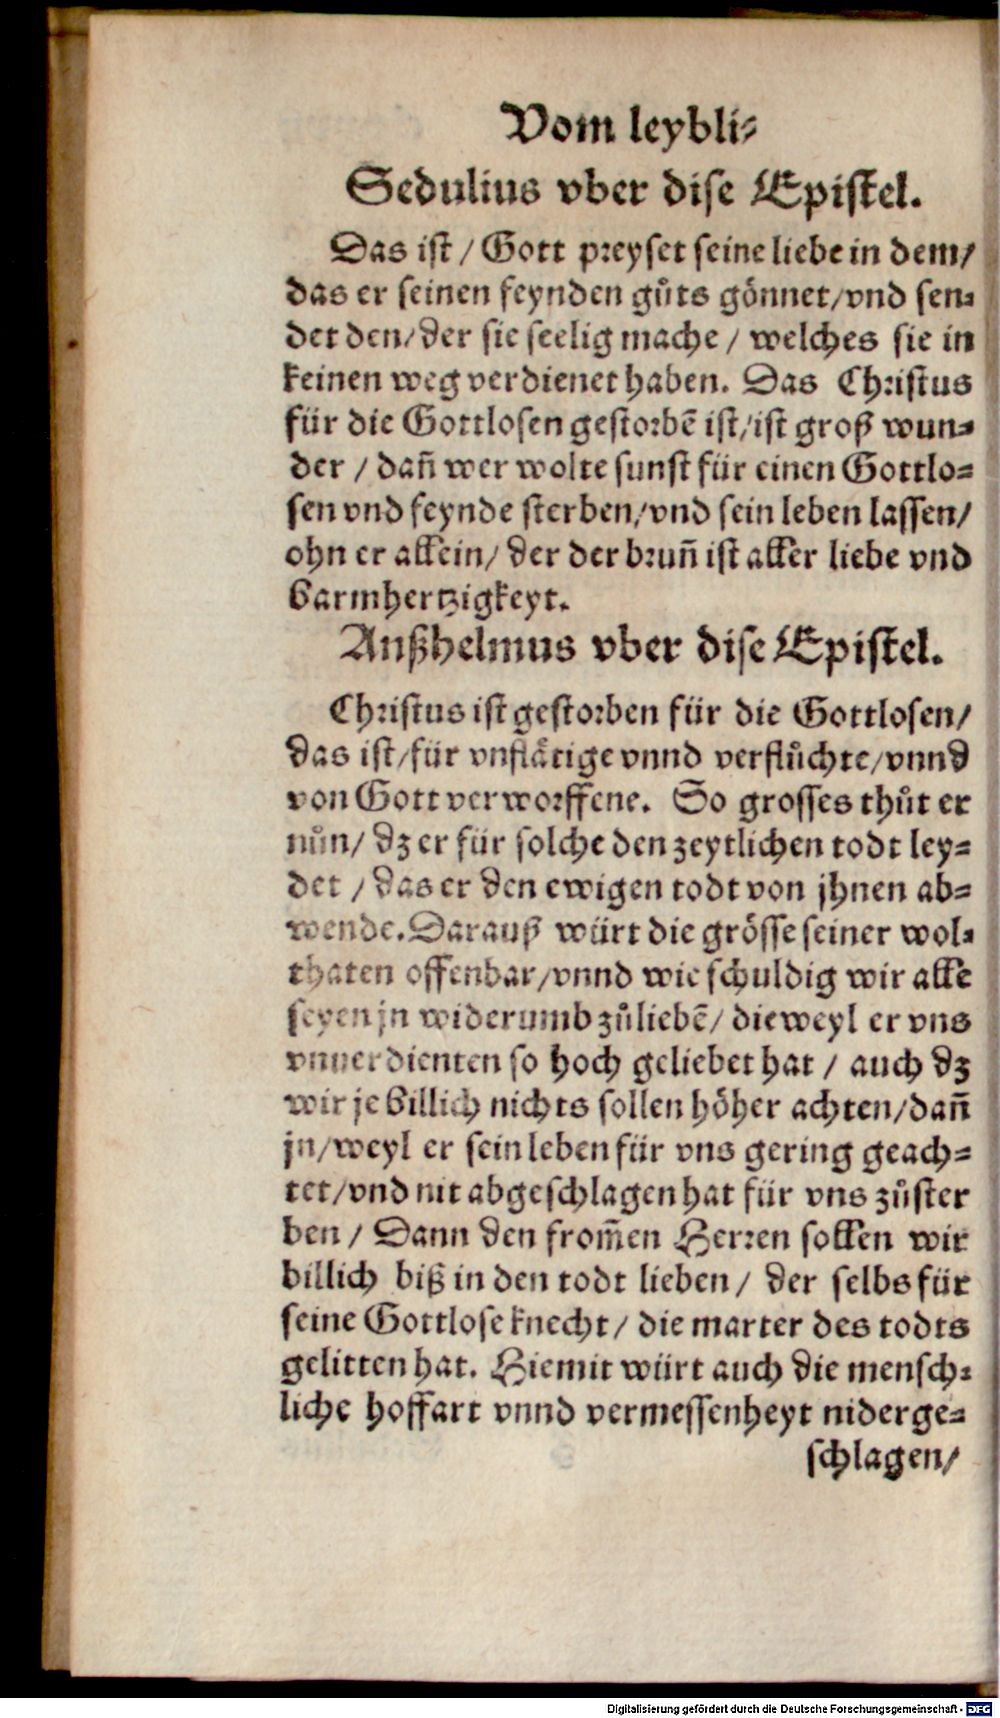 Vom leybli-
Sedulius vber dise Epistel.
Das ist / Gott preyset seine liebe in dem/
das er seinen feynden gůts gönnet/vnd sen-
det den/der sie seelig mache / welches sie in
keinen weg verdienet haben. Das Christus
für die Gottlosen gestorbē ist/ist groß wun-
der / dañ wer wolte sunst für einen Gottlo-
sen vnd feynde sterben/vnd sein leben lassen/
ohn er allein/ der der bruñ ist aller liebe vnd
barmhertzigkeyt.
Anßhelmus vber dise Epistel.
Christus ist gestorben für die Gottlosen/
das ist/für vnflätige vnnd verflůchte/vnnd
von Gott verworffene. So grosses thůt er
nůn/ dz er für solche den zeytlichen todt ley-
det / das er den ewigen todt von jhnen ab-
wende. Darauß würt die grösse seiner wol-
thaten offenbar/vnnd wie schuldig wir alle
seyen jn widerumb zůliebē/ dieweyl er vns
vnuerdienten so hoch geliebet hat / auch dz
wir je billich nichts sollen höher achten/dañ
jn/weyl er sein leben für vns gering geach-
tet/vnd nit abgeschlagen hat für vns zůster
ben / Dann den from̃en Herren sollen wir
billich biß in den todt lieben/ der selbs für
seine Gottlose knecht/ die marter des todts
gelitten hat. Hiemit würt auch die mensch-
liche hoffart vnnd vermessenheyt niderge-
schlagen/
Digitalisierung gefördert durch die Deutsche Forschungsgemeinschaft - DFG